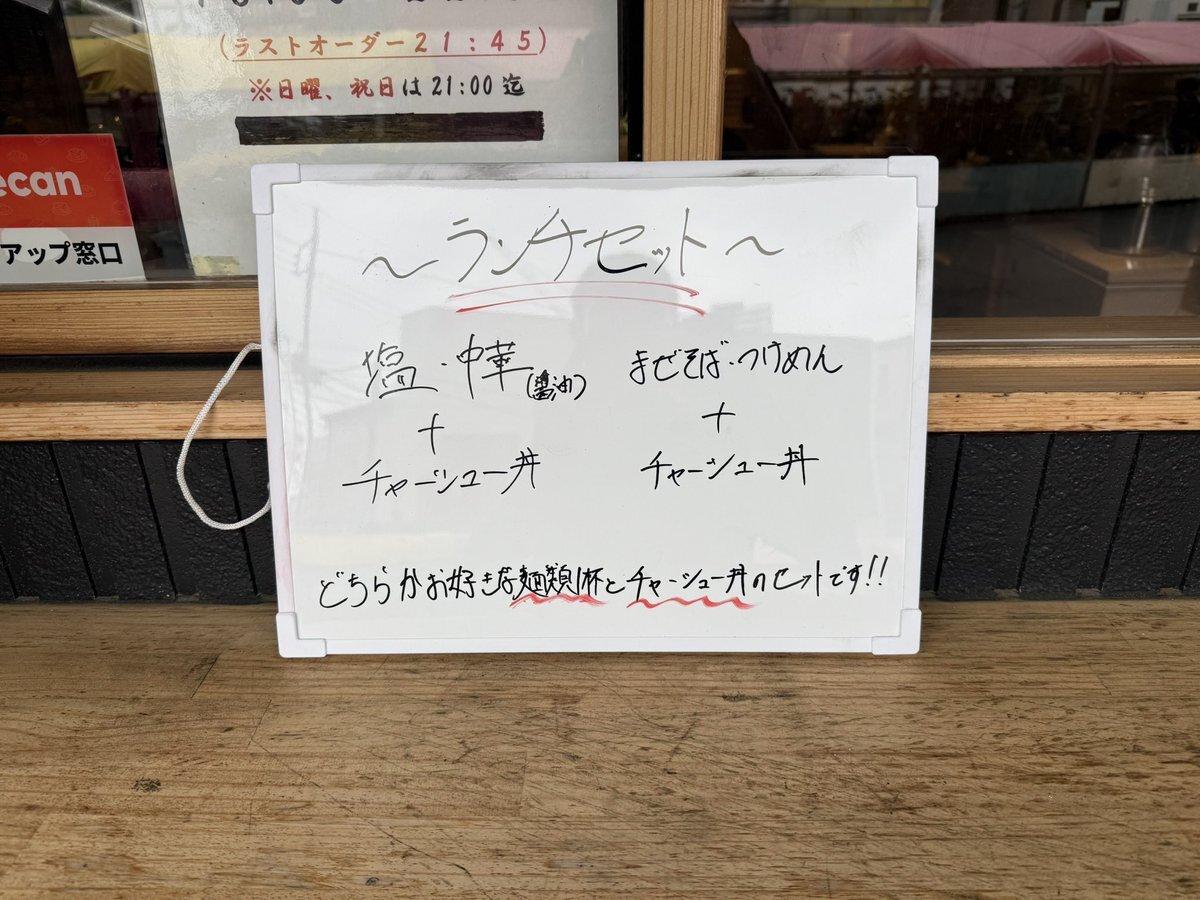 (ラストオーダー21:45)
※日曜、祝日は21:00迄
ecan
アップ窓口
～ランチセット～
塩・中華(醤油)
+
チャーシュー丼
まぜそば・つけめん
+
チャーシュー丼
どちらかお好きな麺類1杯とチャーシュー丼のセットです!!